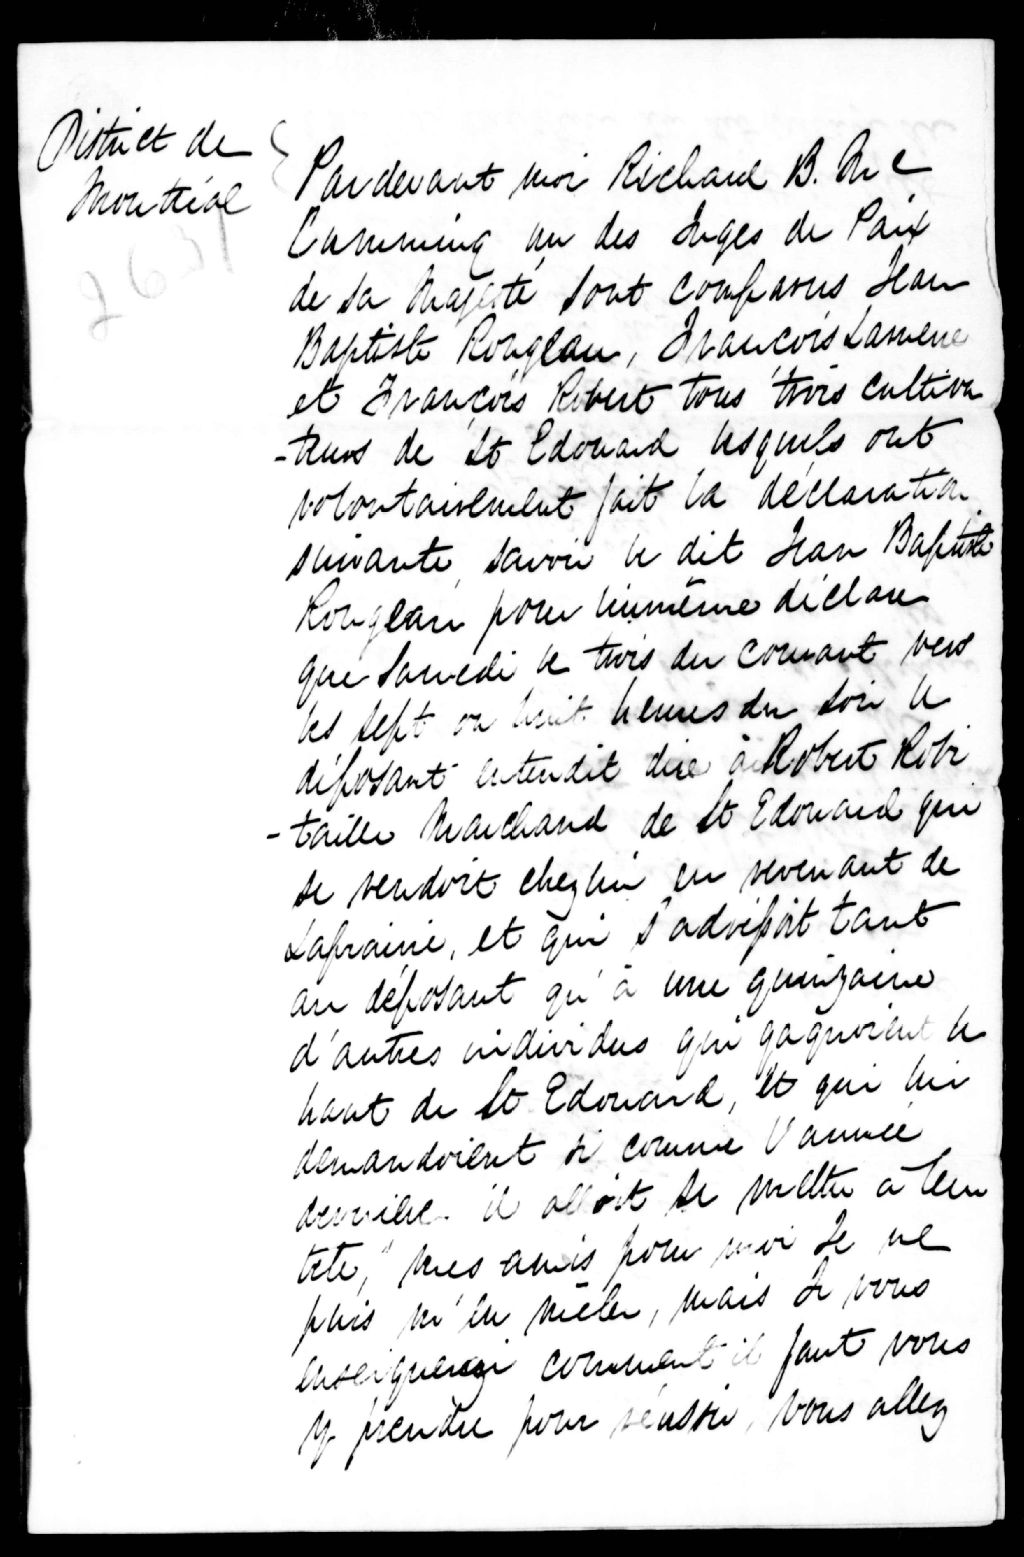 District de
Montréal
2631
Pardevant moi Richard B. Mc
Cumming un des Juges de Paix
de Sa Majesté sont comparus Jean
Baptiste Rougeau, François Lamere
et François Robert tous trois cultiva
-teurs de St Edouard lesquels ont
volontairement fait la déclaration
suivante, savoir le dit Jean Baptiste
Rougeau pour luimême déclare
que Samedi le trois du courant vers
les sept ou huit heures du soir le
déposant entendit dire à Robert Robi
-taille Marchand de St Edouard qui
se rendoit chez lui en revenant de
Laprairie, et qui s'adressoit tant
au déposant qu'à une quinzaine
d'autres individus qui gagnoient le
haut de St Edouard, et qui lui
demandoient si comme l'année
dernière il alloit se mettre à leur
tête, "mes amis pour moi Je ne
puis m'en mêler, mais Je vous
enseignerai comment il faut vous
y prendre pour réussir, vous allez